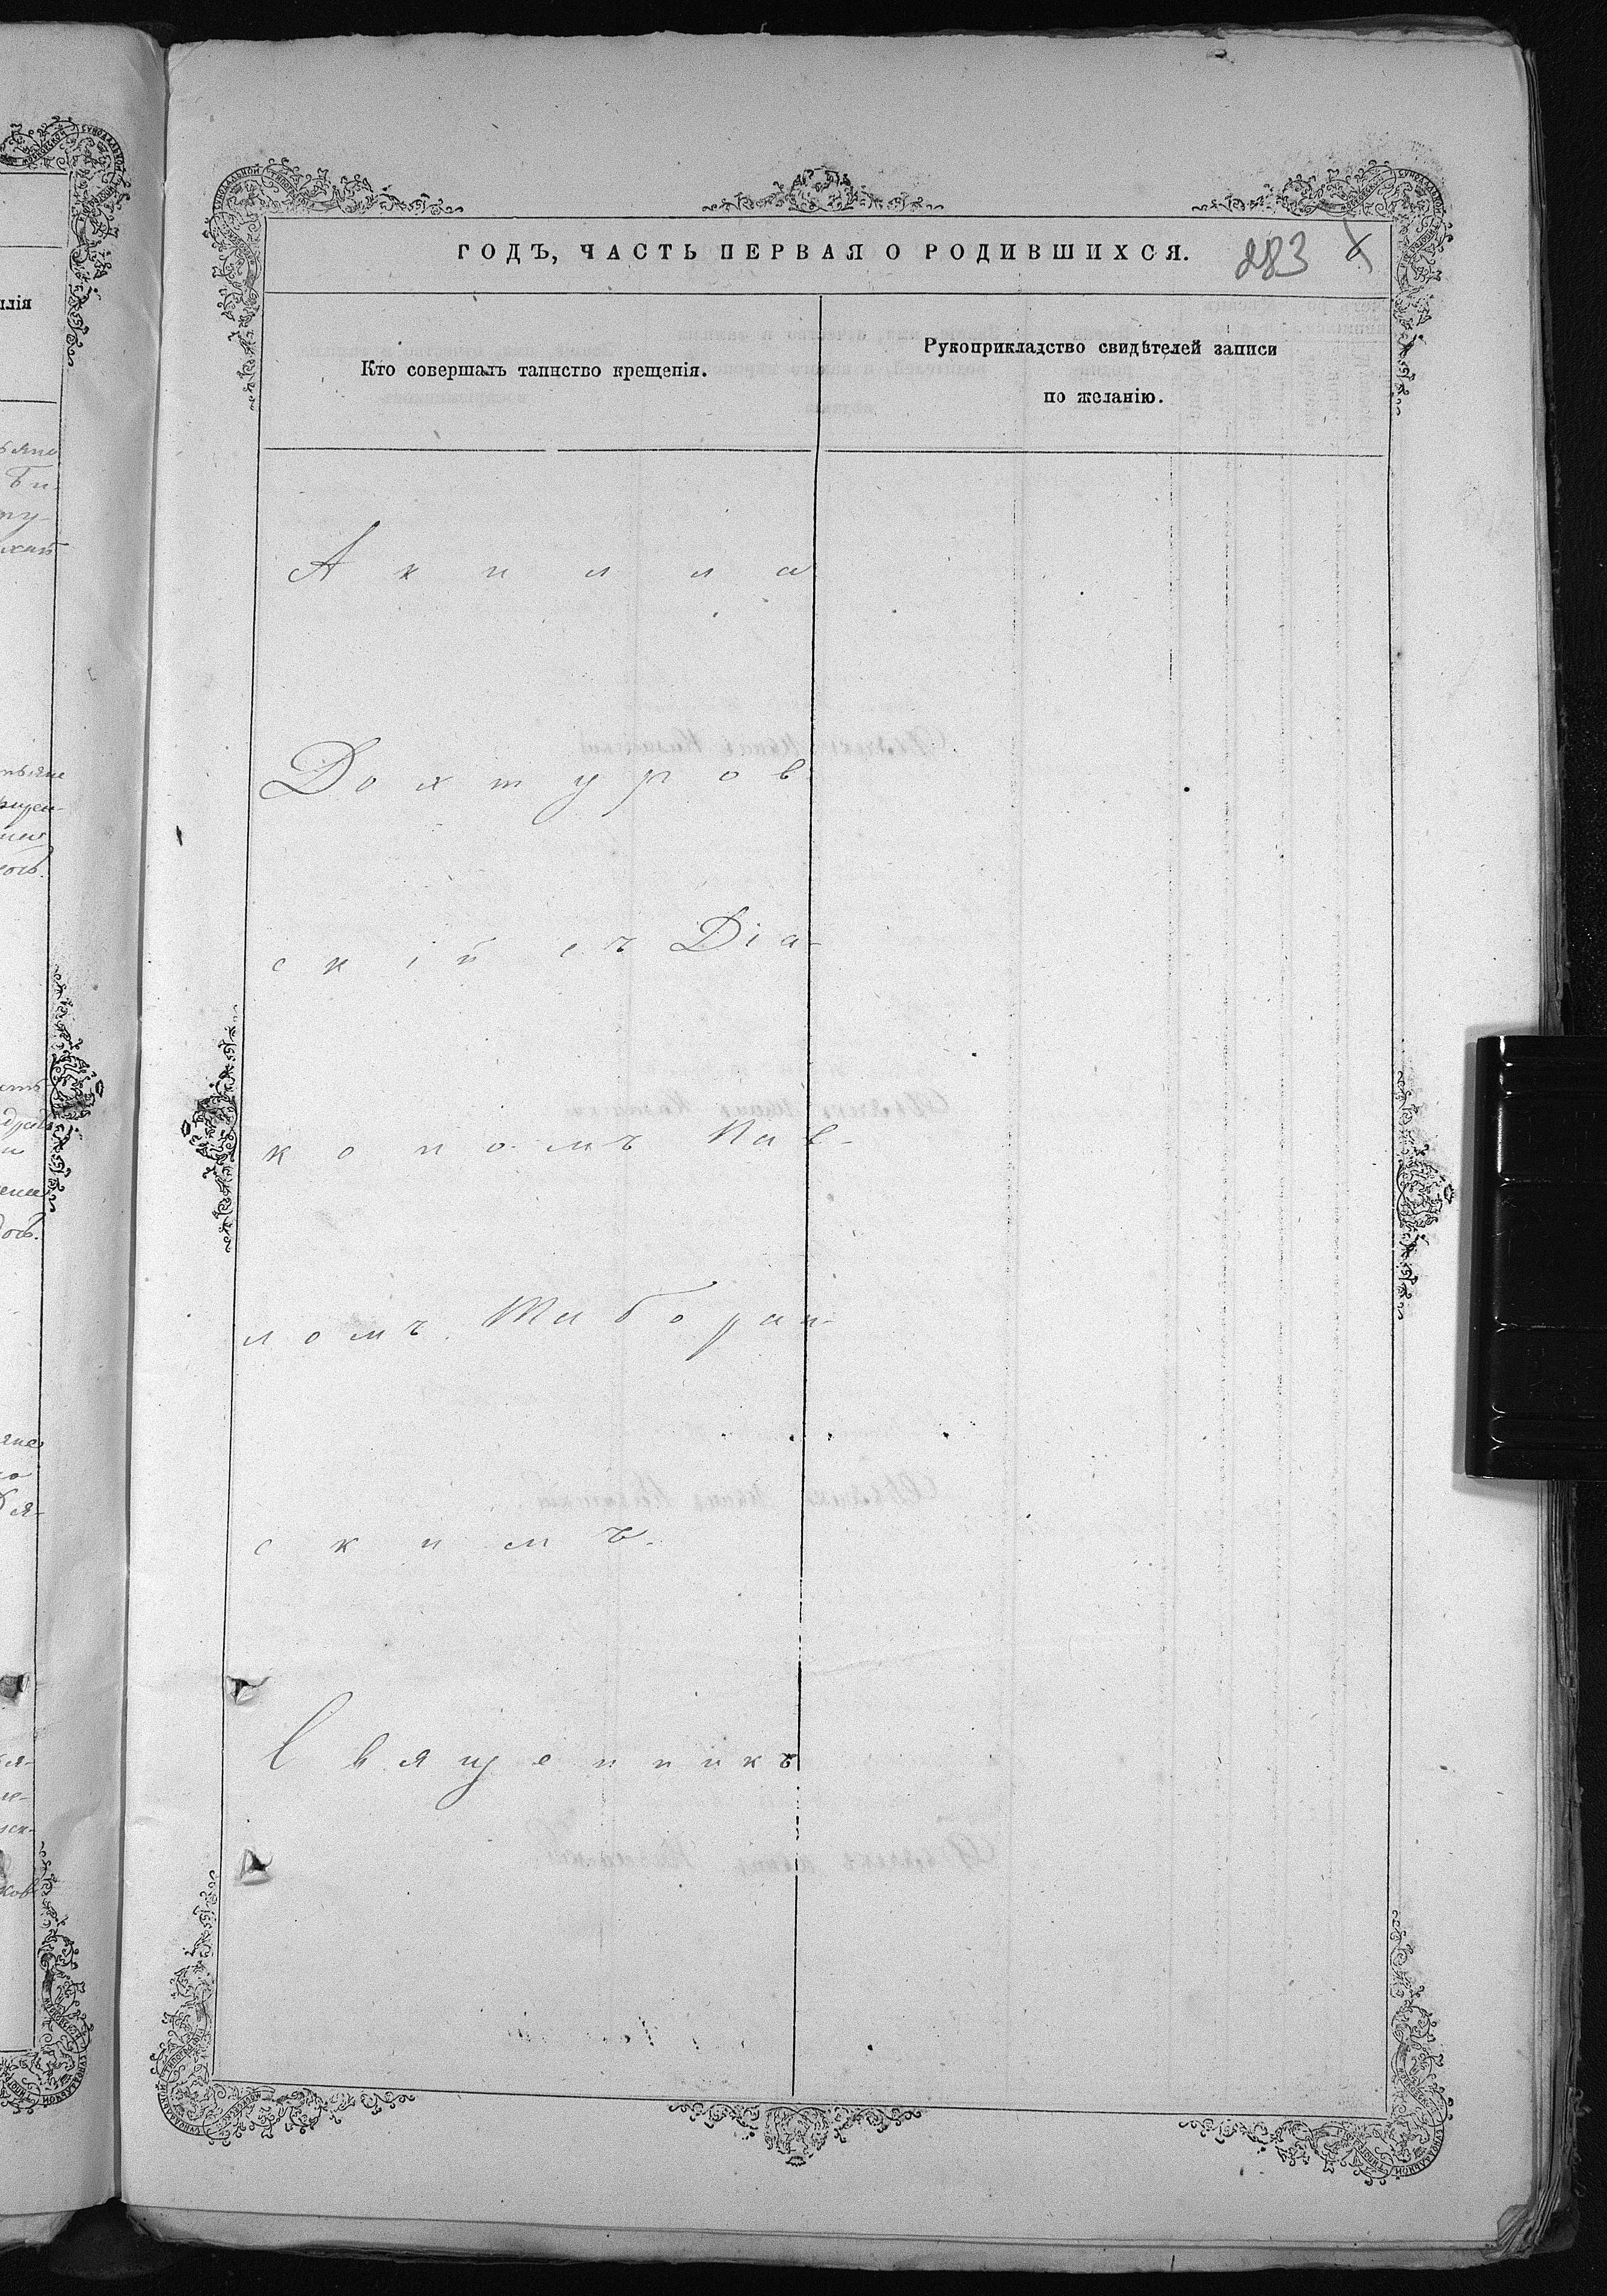 ГОДЪ, ЧАСТЬ ПЕРВАЯ О РОДИВШИХСЯ.
283
Кто совершалъ таинство крещенія.
Рукоприкладство свидѣтелей записи
по желанію.
Акилла
Дохтуров
скій съ Діа-
кономъ Пав-
ломъ Таборин-
скимъ.
Священникъ